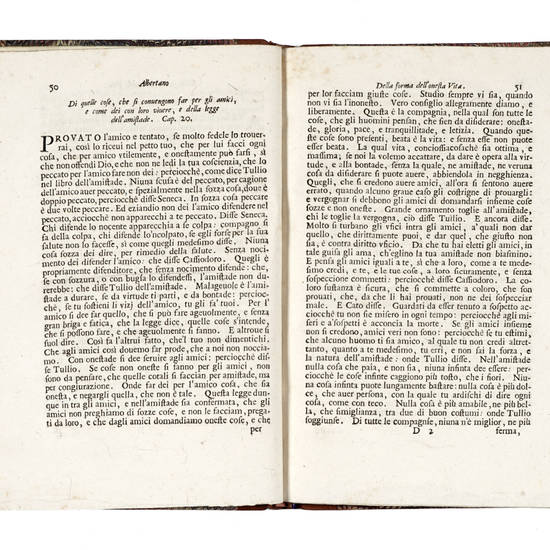 50 Albertano
Di quelle cose, che si convengono far per gli amici,
e come dei con loro vivere, e della legge
dell'amistade. Cap. 20.
PROVATO l'amico e tentato, se molto fedele lo trouer-
rai, così lo riceui nel petto tuo, che per lui facci ogni
cosa, che per amico vtilemente, e onestamente può farsi, sì
che non offendi Dio, e che non ne ledi la tua coscienza, che lo
peccato per l'amico fare non dei: perciocchè, come disse Tullio
nel libro dell'amistade. Niuna scusa è del peccato, per cagione
dell'amico auer peccato, e spezialmente nella sozza cosa, doue è
doppio peccato, perciocchè disse Seneca. In sozza cosa peccare
è due volte peccare. Ed eziandio non dei l'amico difendere nel
peccato, acciocchè non apparecchi a te peccato. Disse Seneca.
Chi difende lo nocente apparecchia a se colpa: compagno si
fa della colpa, chi difende lo'ncolpato, se egli forse per la sua
salute non lo facesse, sì come quegli medesimo disse. Niuna
cosa sozza dei dire, per rimedio della salute. Senza noci-
mento dei difender l'amico: perciocchè disse Cassiodoro. Quegli è
propriamente difenditore, che senza nocimento difende: che,
se con sozzura, o con bugia lo difendessi, l'amistade non du-
rerebbe: che disse Tullio dell'amistade. Malageuole è l'ami-
stade a durare, se da virtude ti parti, e da bontade: percioc-
chè, se tu sostieni li vizj dell'amico, tu gli fa' tuoi. Per l'
amico si dee far quello, che si può fare ageuolmente, e senza
gran briga e fatica, che la legge dice, quelle cose s'intende,
che si possono fare, e ageuolmente si fanno. E altroue si
suol dire. Così fa l'altrui fatto, che'l tuo non dimentichi.
Che agli amici così douemo far prode, che a noi non faccia-
mo danno. Con onestade si dee seruire agli amici: perciocchè dis-
se Tullio. Se cose non oneste si fanno per gli amici, non
sono da pensare, che quelle cotali si facciano per amistade, ma
per congiurazione. Onde far dei per l'amico cosa, che sia
onesta, e negargli quella, che non è tale. Questa legge dun-
que in tra gli amici, e nell'amistade sia confermata, che gli
amici non preghiamo di sozze cose, e non le facciam, prega-
ti da loro, e che dagli amici domandiamo oneste cose, e che
per
Della forma dell'onesta Vita. 51
per lor facciam giuste cose. Studio sempre vi sia, quando
non vi sia l'inonesto. Vero consiglio allegramente diamo, e
liberamente. Questa è la compagnia, nella qual son tutte le
cose, che gli huomini pensan, che sien da disiderare: onesta-
de, gloria, pace, e tranquillitade, e letizia. Quando que-
ste cose sono presenti, beata è la vita: e senza esse non puote
esser beata. La qual vita, conciossiacosachè sia ottima, e
massima; se noi la volemo accattare, da dare è opera alla vir-
tude, e alla bontade, senza la quale, ne amistade, ne veruna
cosa da disiderare si puote auere, abbiendola in negghienza.
Quegli, che si credono auere amici, all'ora si sentono auere
errato, quando alcuno graue caso gli costrigne di prouargli:
e vergognar si debbono gli amici di domandarsi insieme cose
sozze e non oneste. Grande ornamento toglie all'amistade,
chi le toglie la vergogna, ciò disse Tullio. E ancora disse.
Molto si turbano gli vfici intra gli amici, a' quali non dar
quello, che dirittamente puoi, e dar quel, che giusto non
sia, è contra diritto vficio. Da che tu hai eletti gli amici, in
tale guisa gli ama, ch'eglino la tua amistade non biasmino.
E pensa gli amici iguali a te, sì che a loro, come a te mede-
simo credi, e te, e le tue cose, a loro sicuramente, e senza
sospeccione commetti: perciocchè disse Cassiodoro. La co-
loro sustanza è sicura, che si commette a coloro, che son
prouati, che da che li hai prouati, non ne dei sospecciar
male. E Cato disse. Guardati da esser tenuto a sospetto ac-
ciocchè tu non sie misero in ogni tempo: perciocchè agli mi-
seri e a' sospetti è acconcia la morte. Se gli amici insieme
non si credono, amici veri non sono: perciocchè se tu estimi,
che alcuno huomo sia tuo amico, al quale tu non credi altret-
tanto, quanto a te medesimo, tu erri, e non sai la forza, e
la natura dell'amistade: onde Tullio disse. E ancora disse.
nulla cosa che paia, e non sia, niuna infinta dee essere: per-
ciocchè le cose infinte caggiono più tosto, che i fiori. Niu-
na cosa infinta puote lungamente bastare: nulla cosa è più dol-
ce, che auer persona, con la qual tu ardischi di dire ogni
cosa, come con teco. Nulla cosa è più amabile, ne più bel-
la, che simiglianza, tra due di buon costumi: onde Tullio
soggiunse. Di tutte le compagnie, niuna n'è miglior, ne più
D 2 ferma,